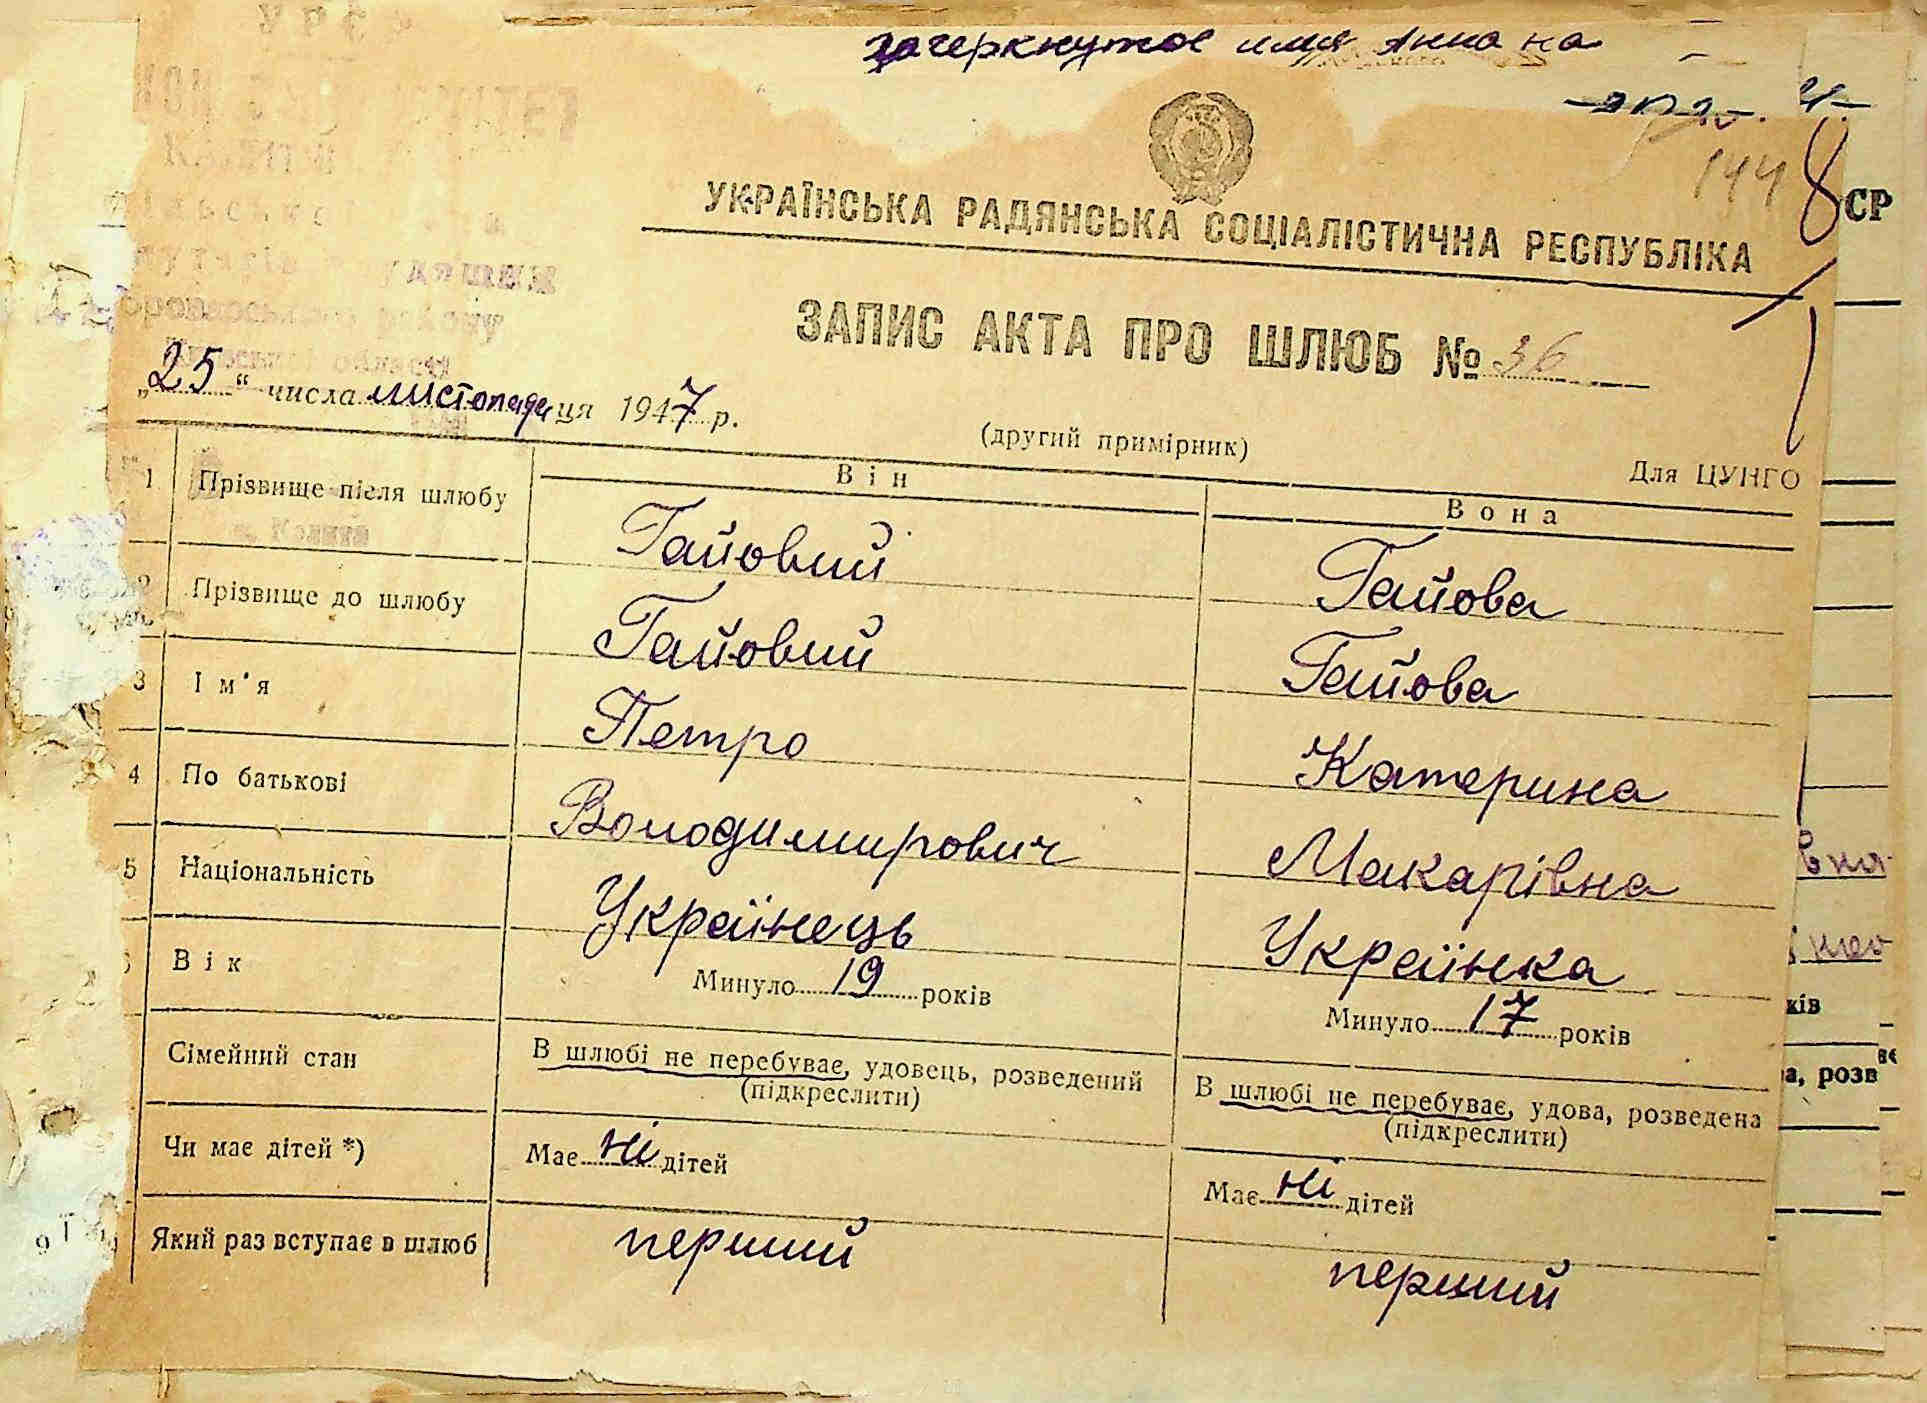 зачеркнутое имя Анна на
144 8
СР
УРСР
ВИКОНАВЧИЙ КОМІТЕТ
УКРАЇНСЬКА РАДЯНСЬКА СОЦІАЛІСТИЧНА РЕСПУБЛІКА
району
області
ЗАПИС АКТА ПРО ШЛЮБ № 36
„25“ числа листопада ця 1947 р.
(другий примірник)
Для ЦУНГО
Він Вона
1 Прізвище після шлюбу Гайовий Гайова
2 Прізвище до шлюбу Гайовий Гайова
3 Ім'я Петро Катерина
4 По батькові Володимирович Макарівна
5 Національність Українець Українка
Вік Минуло 19 років Минуло 17 років
Сімейний стан В шлюбі не перебуває, удовець, розведений В шлюбі не перебуває, удова, розведена
(підкреслити) (підкреслити)
Чи має дітей *) Має ні дітей Має ні дітей
9 Який раз вступає в шлюб перший перший
вна
ків
а, розв